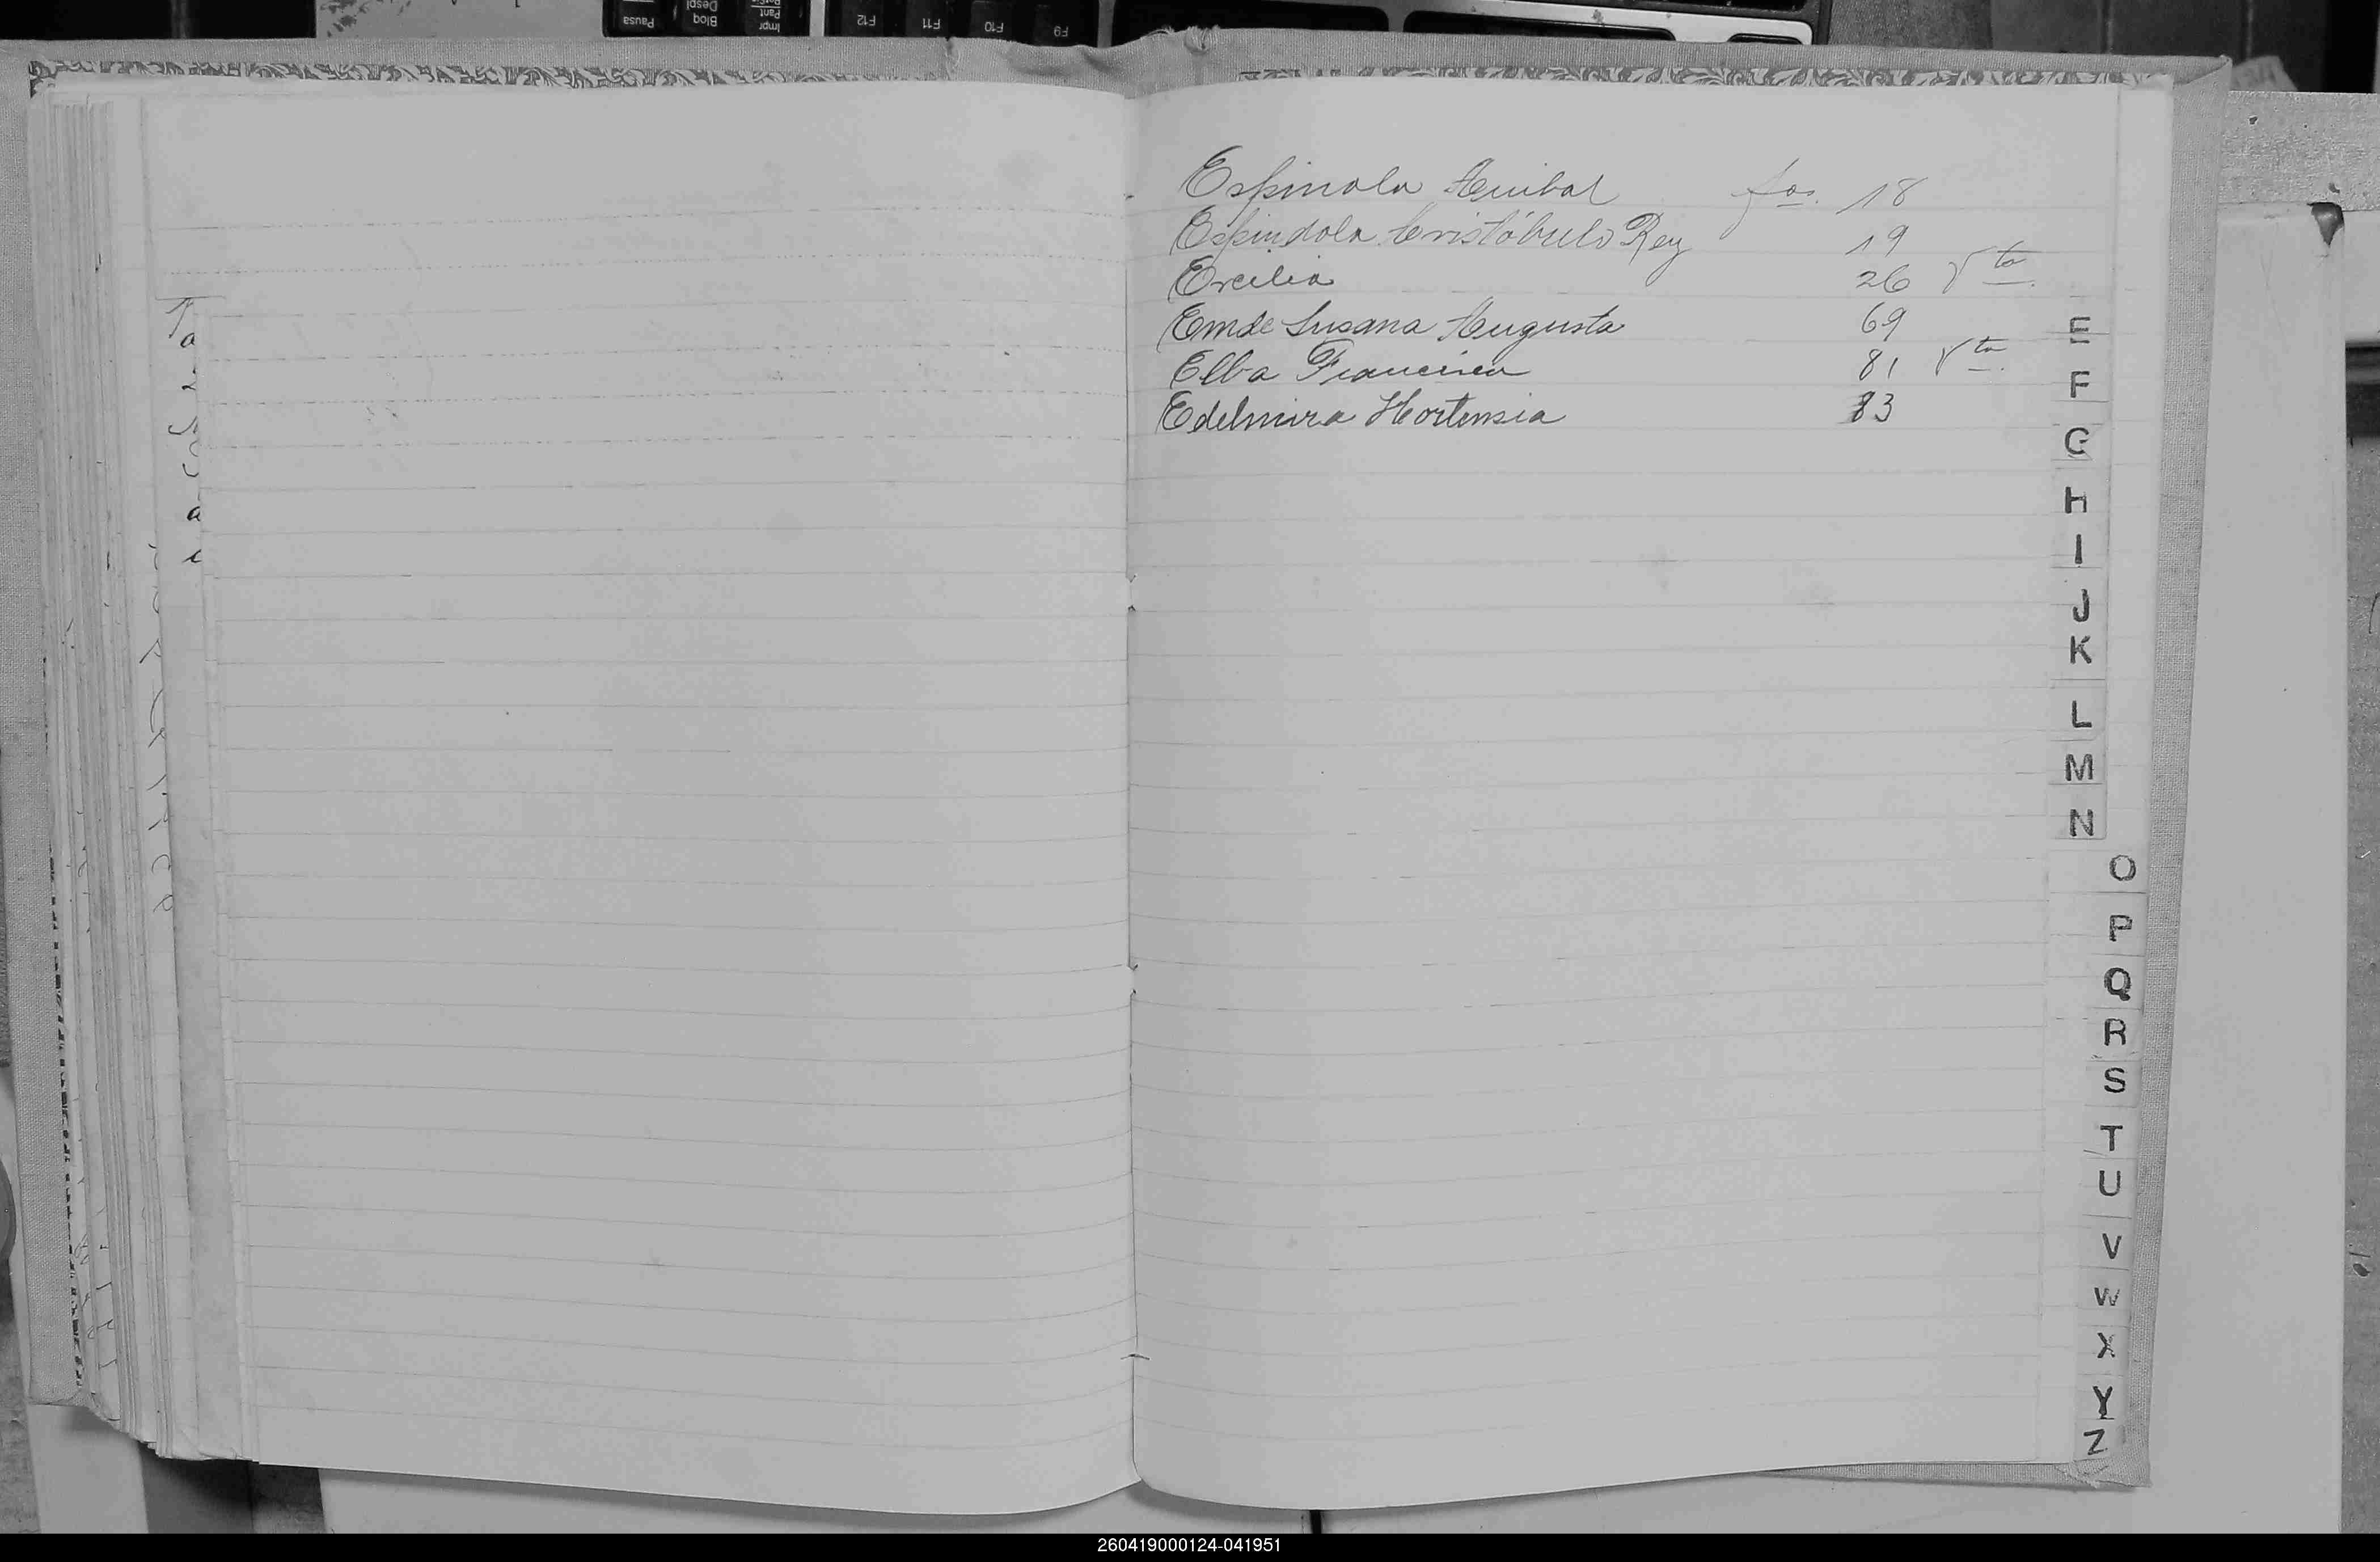 Espinola Anibal fos. 18
Espindola Cristóbulo Rey 19
Ercilia 26 Vta.
Emde Susana Augusta 69
Elba Francisca 81 Vta.
Edelmira Hortensia 83
E
F
G
H
I
J
K
L
M
N
O
P
Q
R
S
T
U
V
W
X
Y
Z
Pausa
Bloq
Despl
Impr
Pant
F12
F11
F10
F9
260419000124-041951